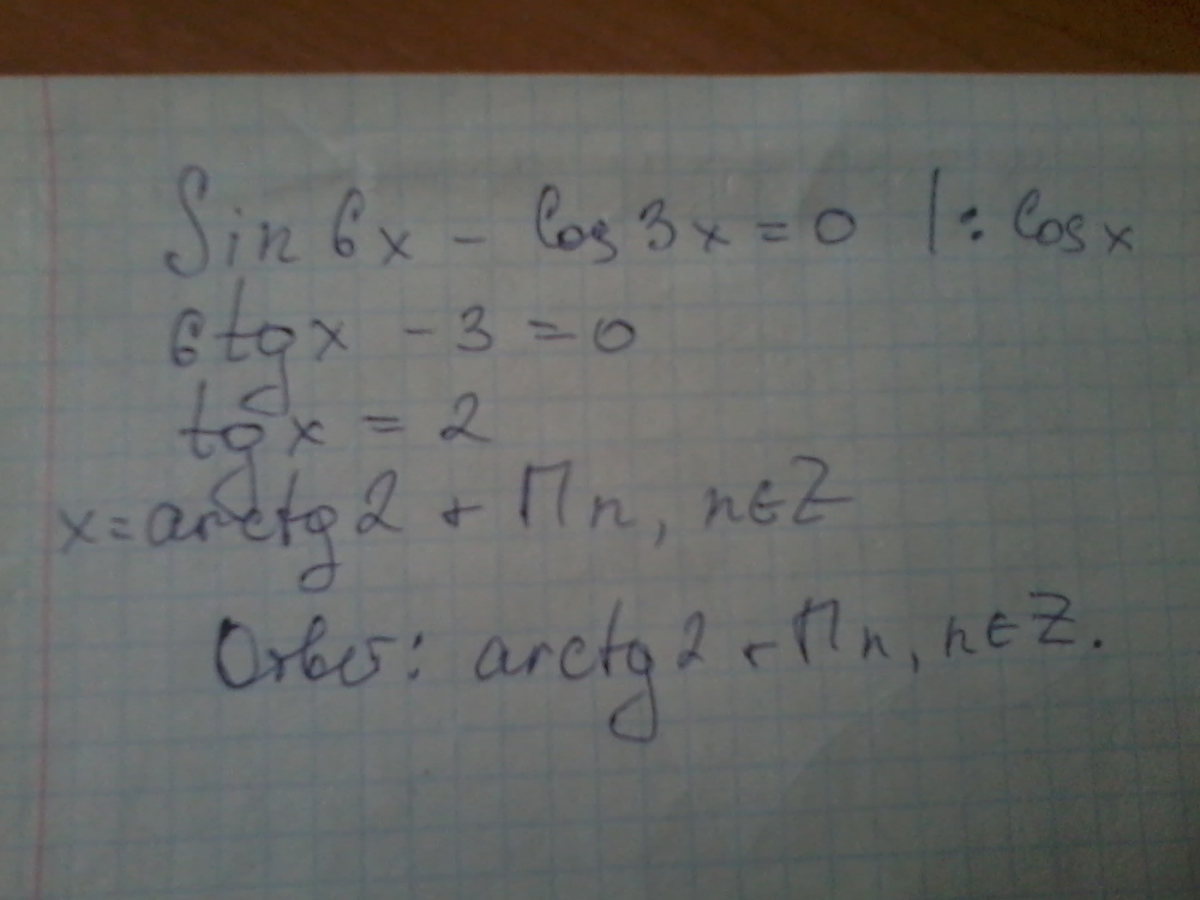 Sin 6x - Cos 3x = 0 | : Cos x
6 tg x - 3 = 0
tg x = 2
x = arctg 2 + Пn, n ∈ Z
Ответ: arctg 2 + Пn, n ∈ Z.